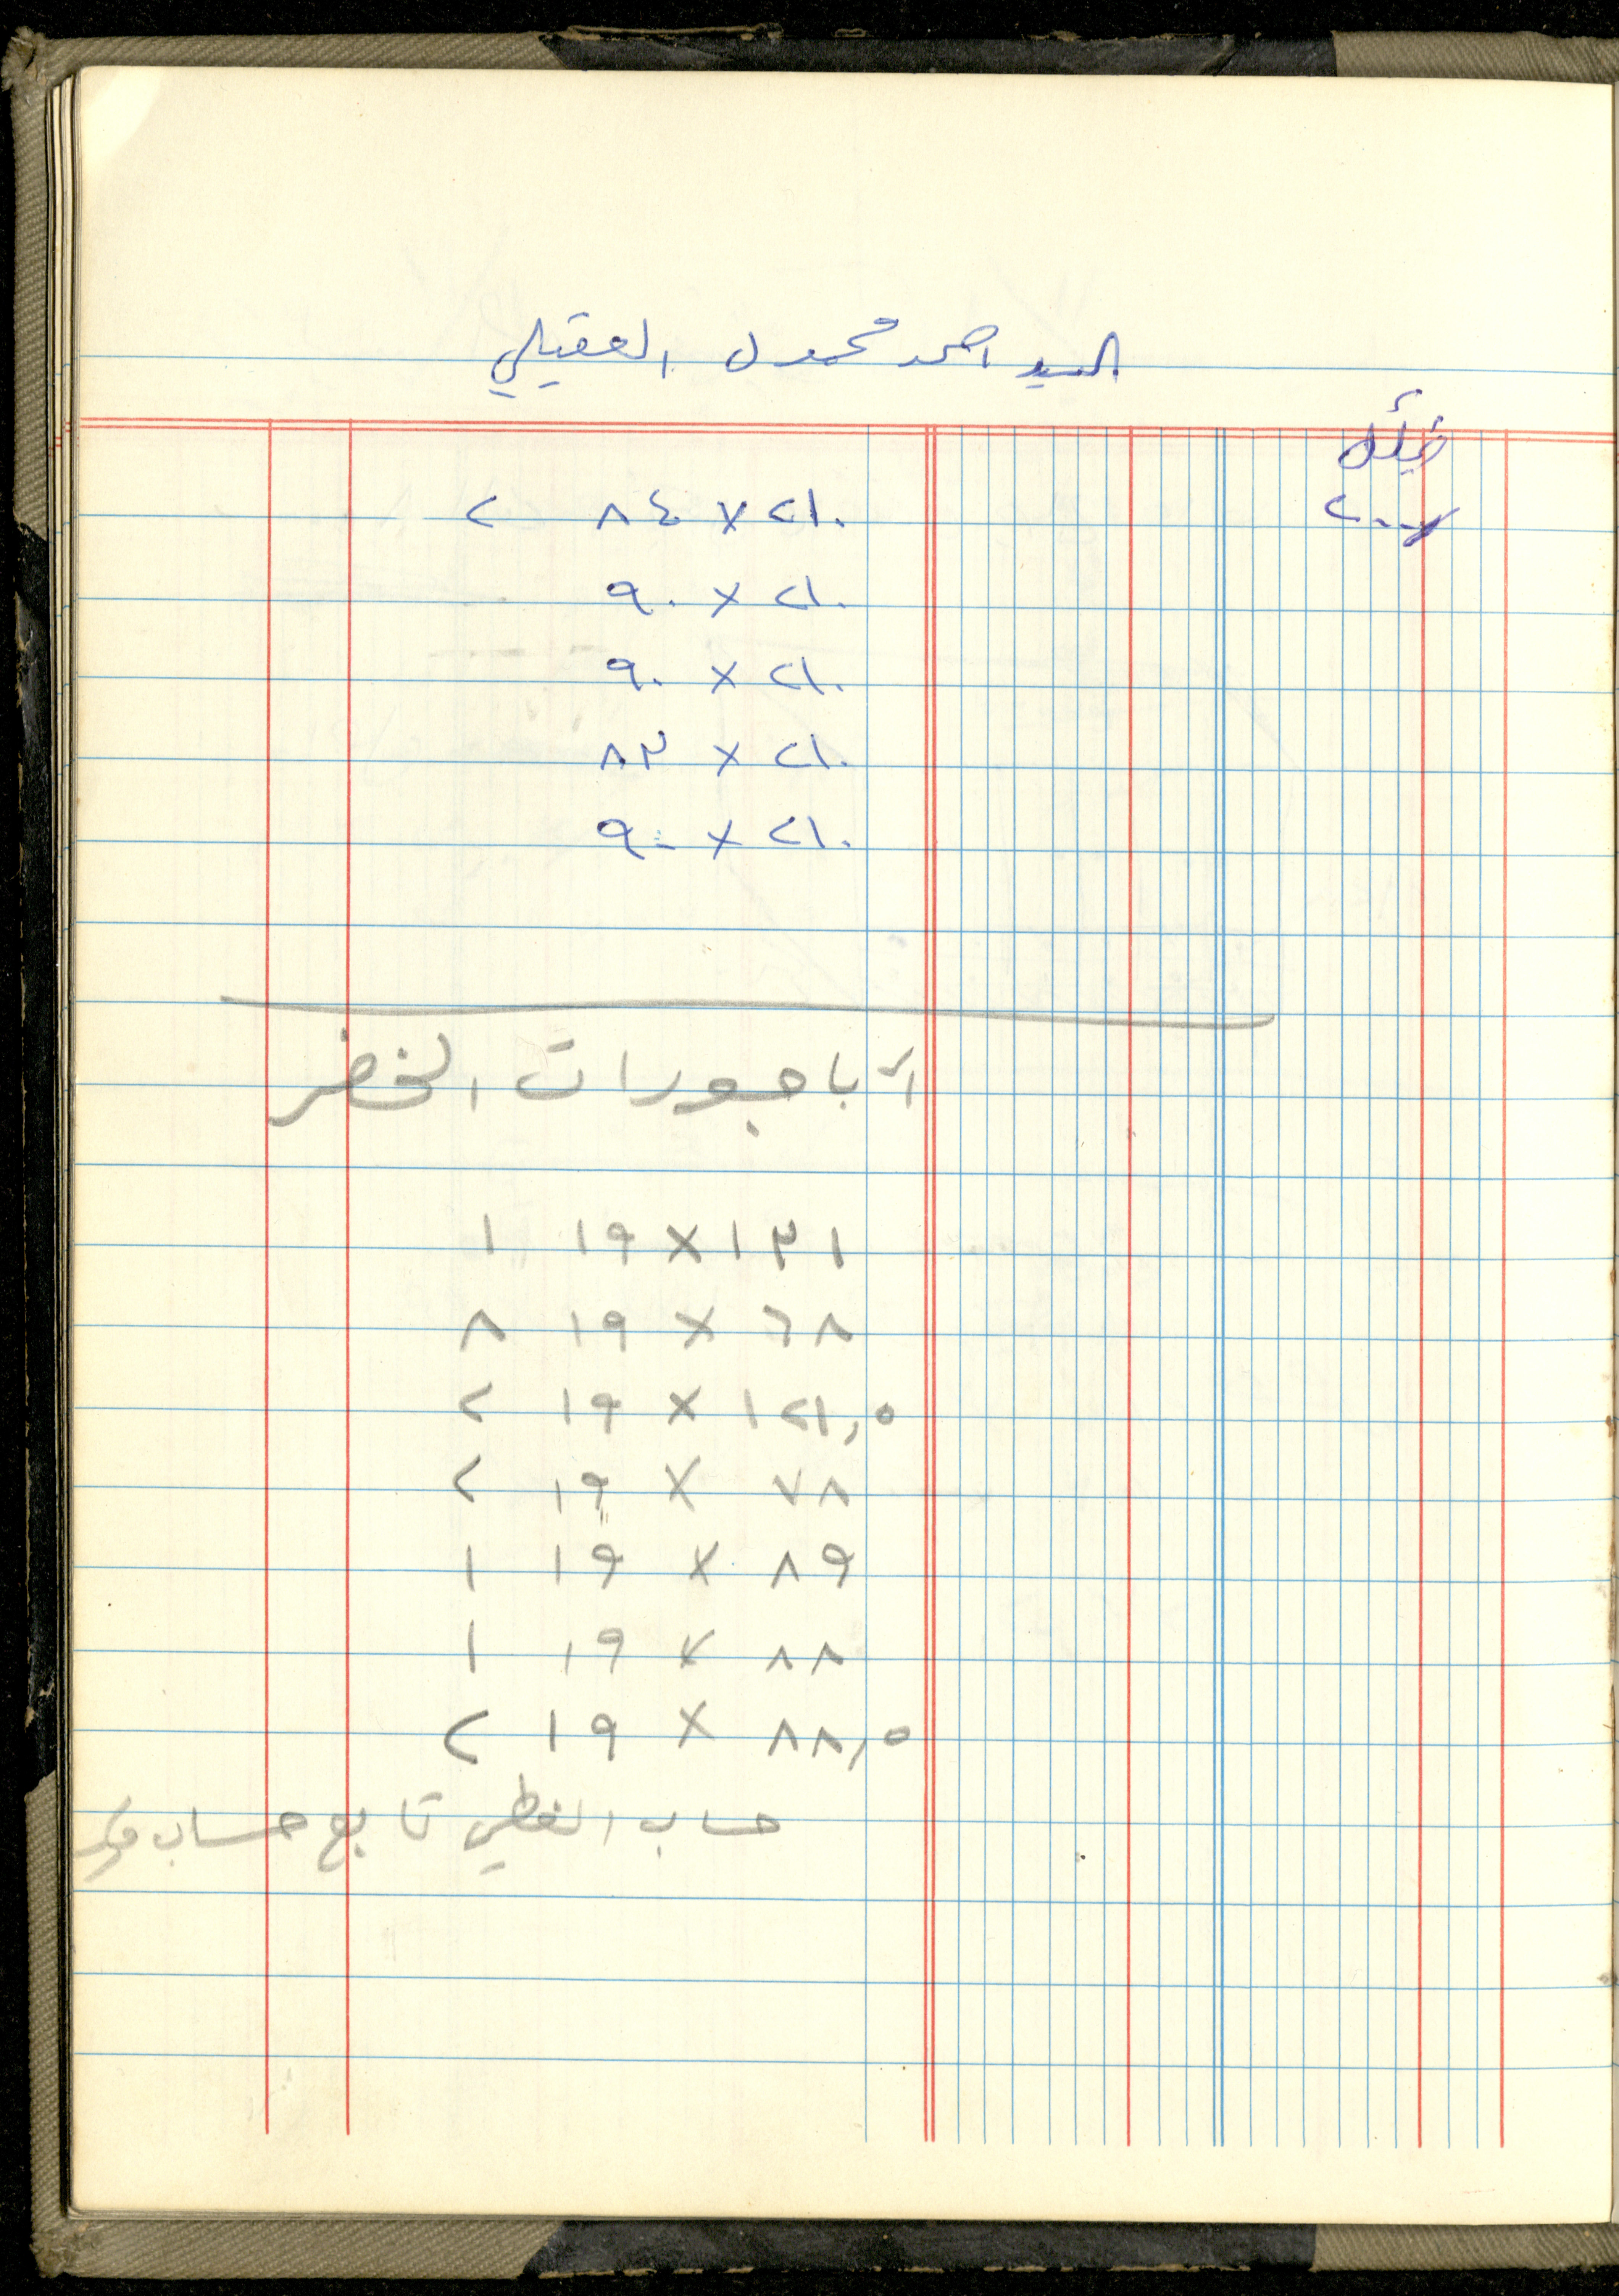 السيد احمد محمود العقيلي
٢٠٠
٢١٠ × ٨٤ ٢
٢١٠ × ٩٠
٢١٠ × ٩٠
٢١٠ × ٨٣
٢١٠ × ٩٠
الأباجورات الخضر
١٣١ × ١٩ ١
٦٨ × ١٩ ٨
١٢١,٥ × ١٩ ٢
٧٨ × ١٩ ٢
٨٩ × ١٩ ١
٨٨ × ١٩ ١
٨٨,٥ × ١٩ ٢
حساب تابع حساب